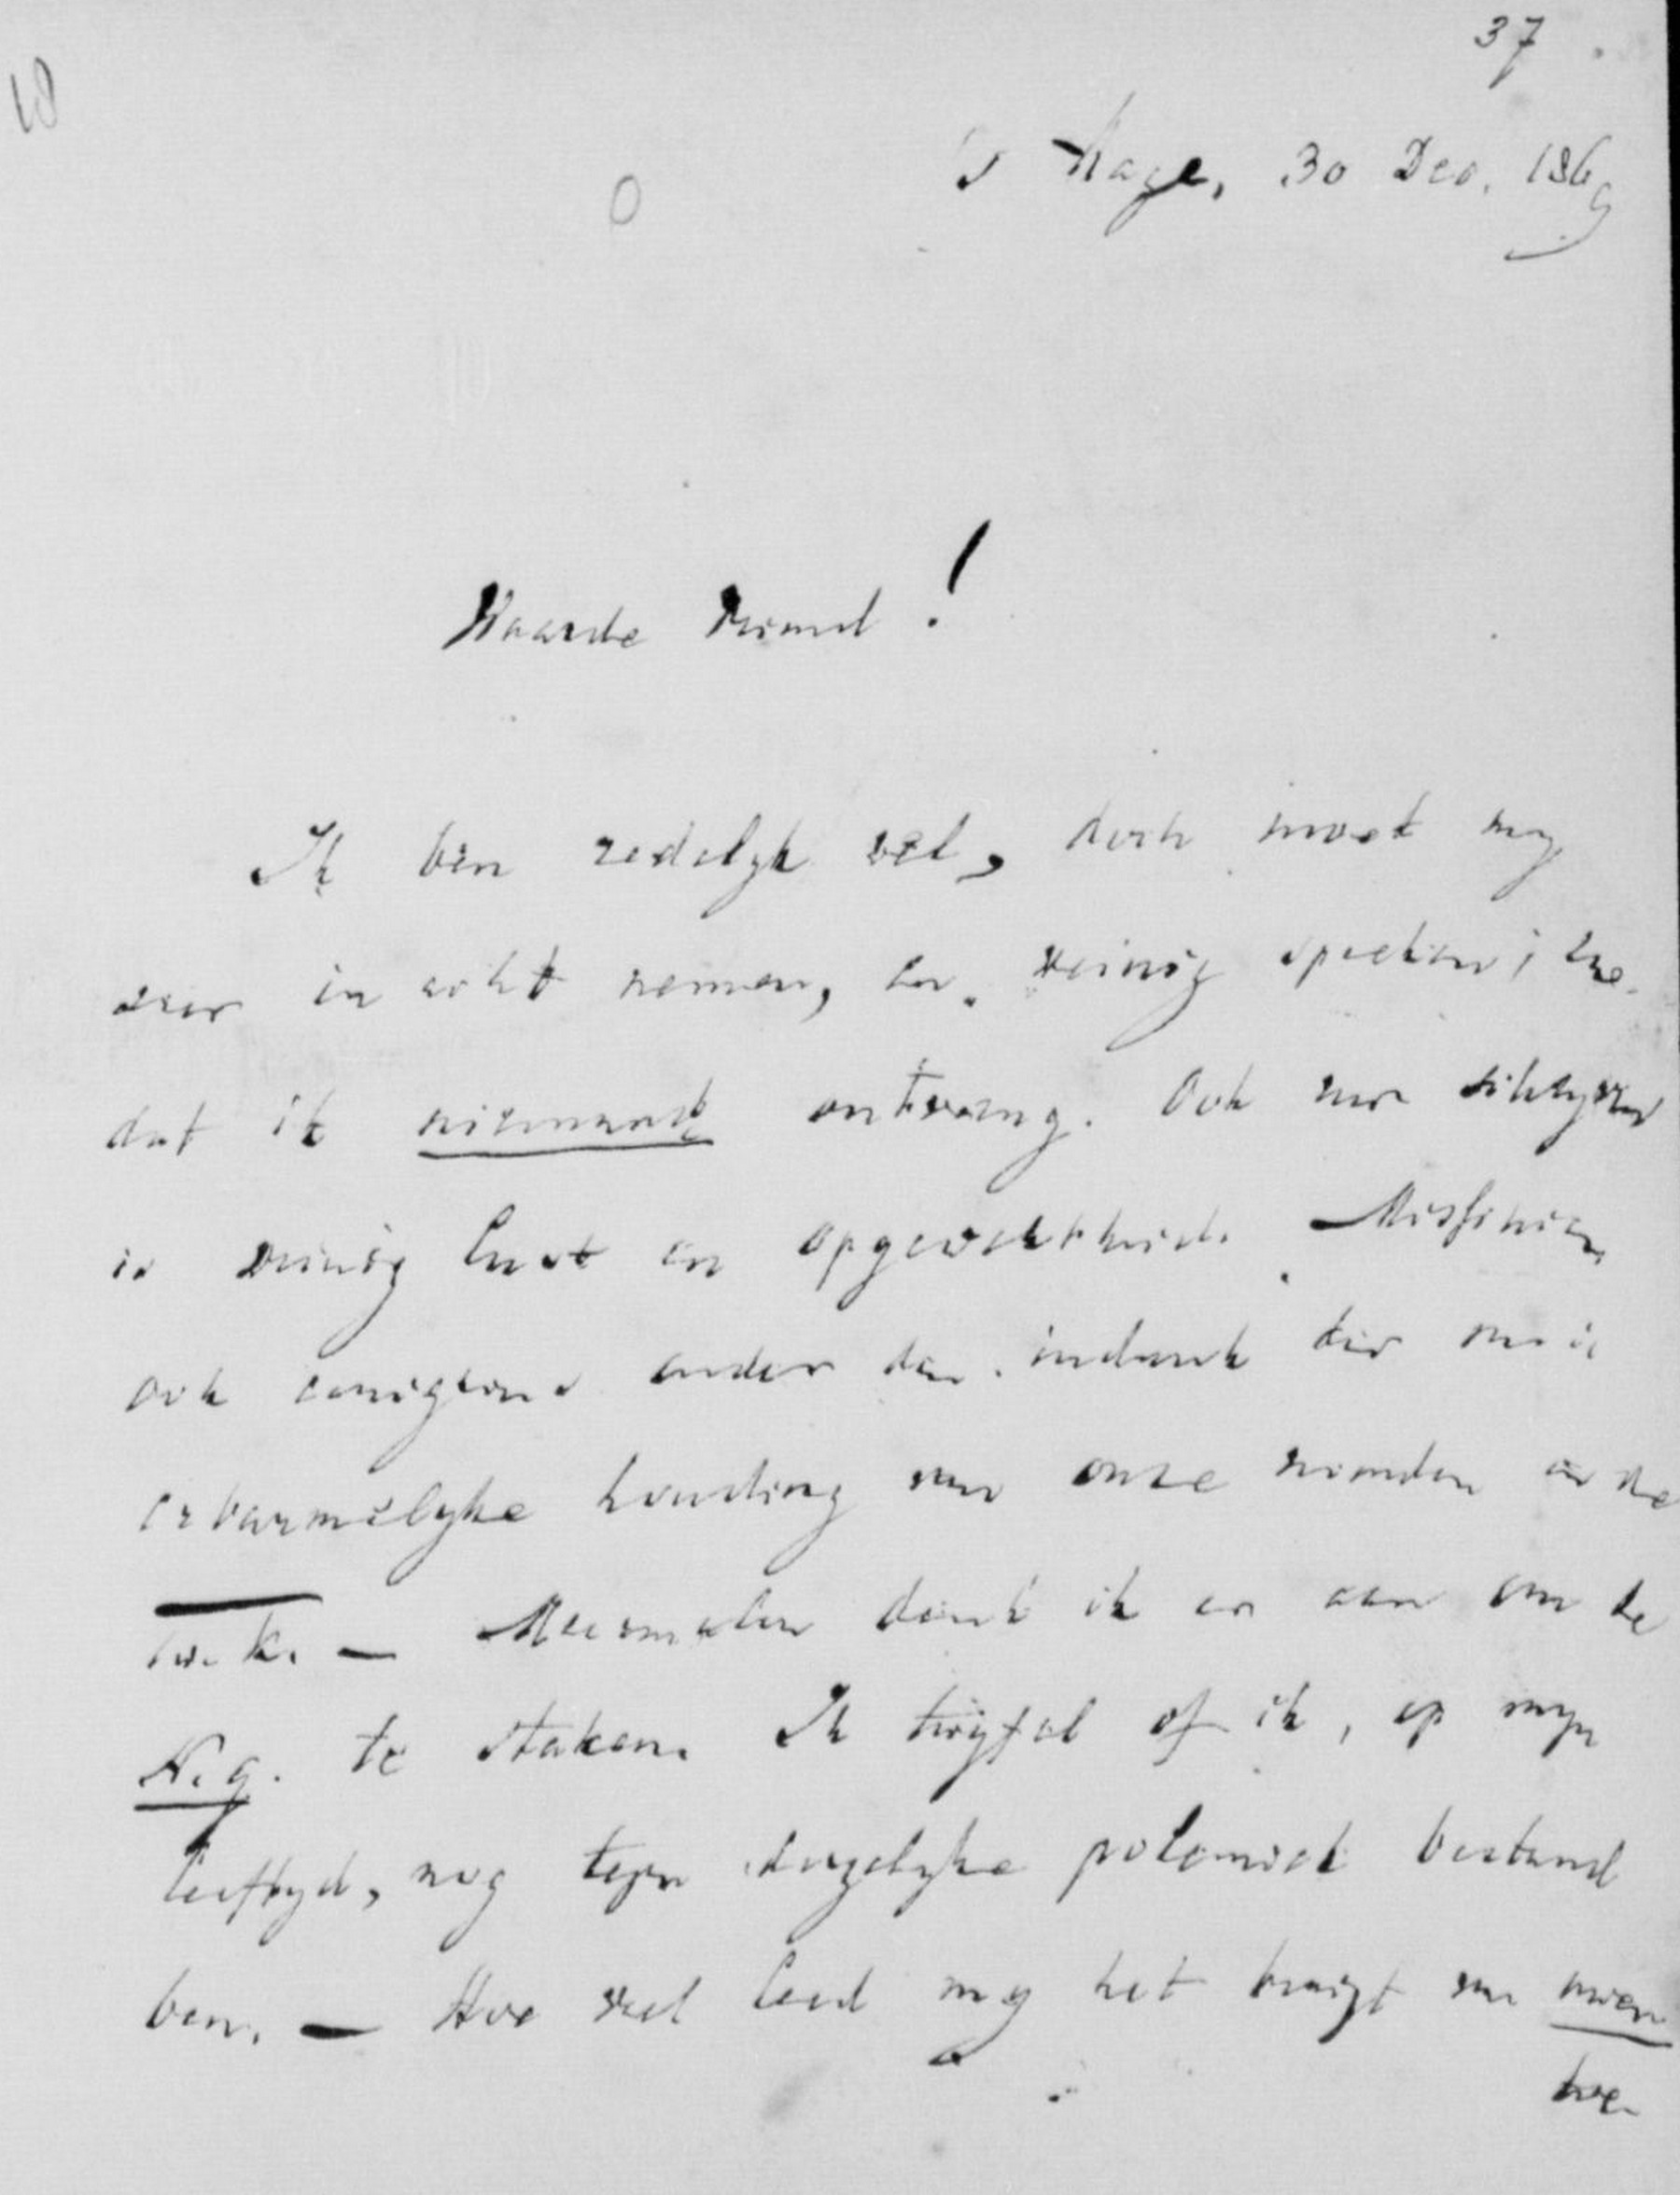 37
's Hage, 30 Dec. 1869
Waarde Vriend!
Ik ben redelyk wel, doch moet my
zeer in acht nemen, en weinig spreken; zoo
dat ik niemand ontvang. Ook voor
is weinig lust en opgewektheid. Misschien
ook eenigzins onder den indruk der
erbarmelyke houding van onze vrienden in de
Tw. K. — Meermalen denk ik er aan om de
N. g. te staken. Ik twyfel of ik, op myn
leeftyd, nog tegen dergelyke polemiek bestand
ben. — Hoe veel leed my het berigt van uwen
toe-